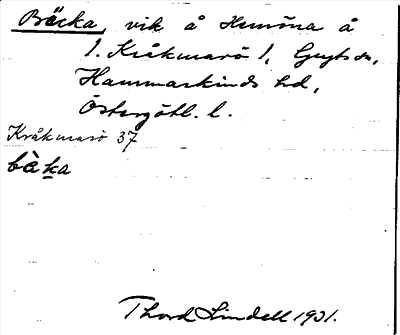 Bäcka, vik å Hemöna å
1. Kråkmarö 1, Gryts sn,
Hammarkinds hd,
Östergötl. l.
Kråkmarö 37
bàka
Thord Lindell 1931.